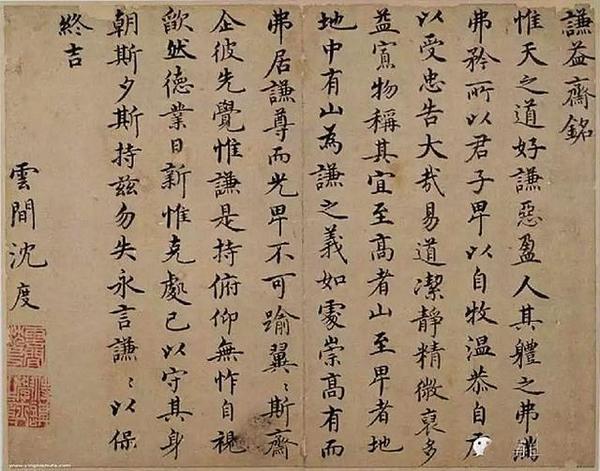 謙益齋銘
惟天之道好謙惡盈人其體之弗滿
弗矜所以君子卑以自牧溫恭自居
以受忠告大哉易道潔靜精微裒多
益寡物稱其宜至高者山至卑者地
地中有山為謙之義如處崇高有而
弗居謙尊而光卑不可踰翼〻斯齋
企彼先覺惟謙是持俯仰無怍自視
歉然德業日新惟克處己以守其身
朝斯夕斯持茲勿失永言謙〻以保
終吉
雲間沈度